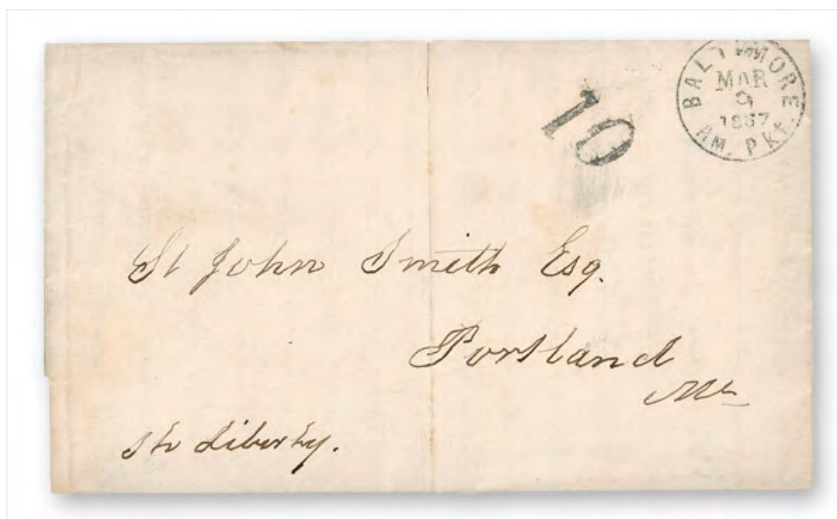 BALTIMORE
MAR
9
1867
AM. PKT.
10
St John Smith Esq.
Portland
Me
Str Liberty.